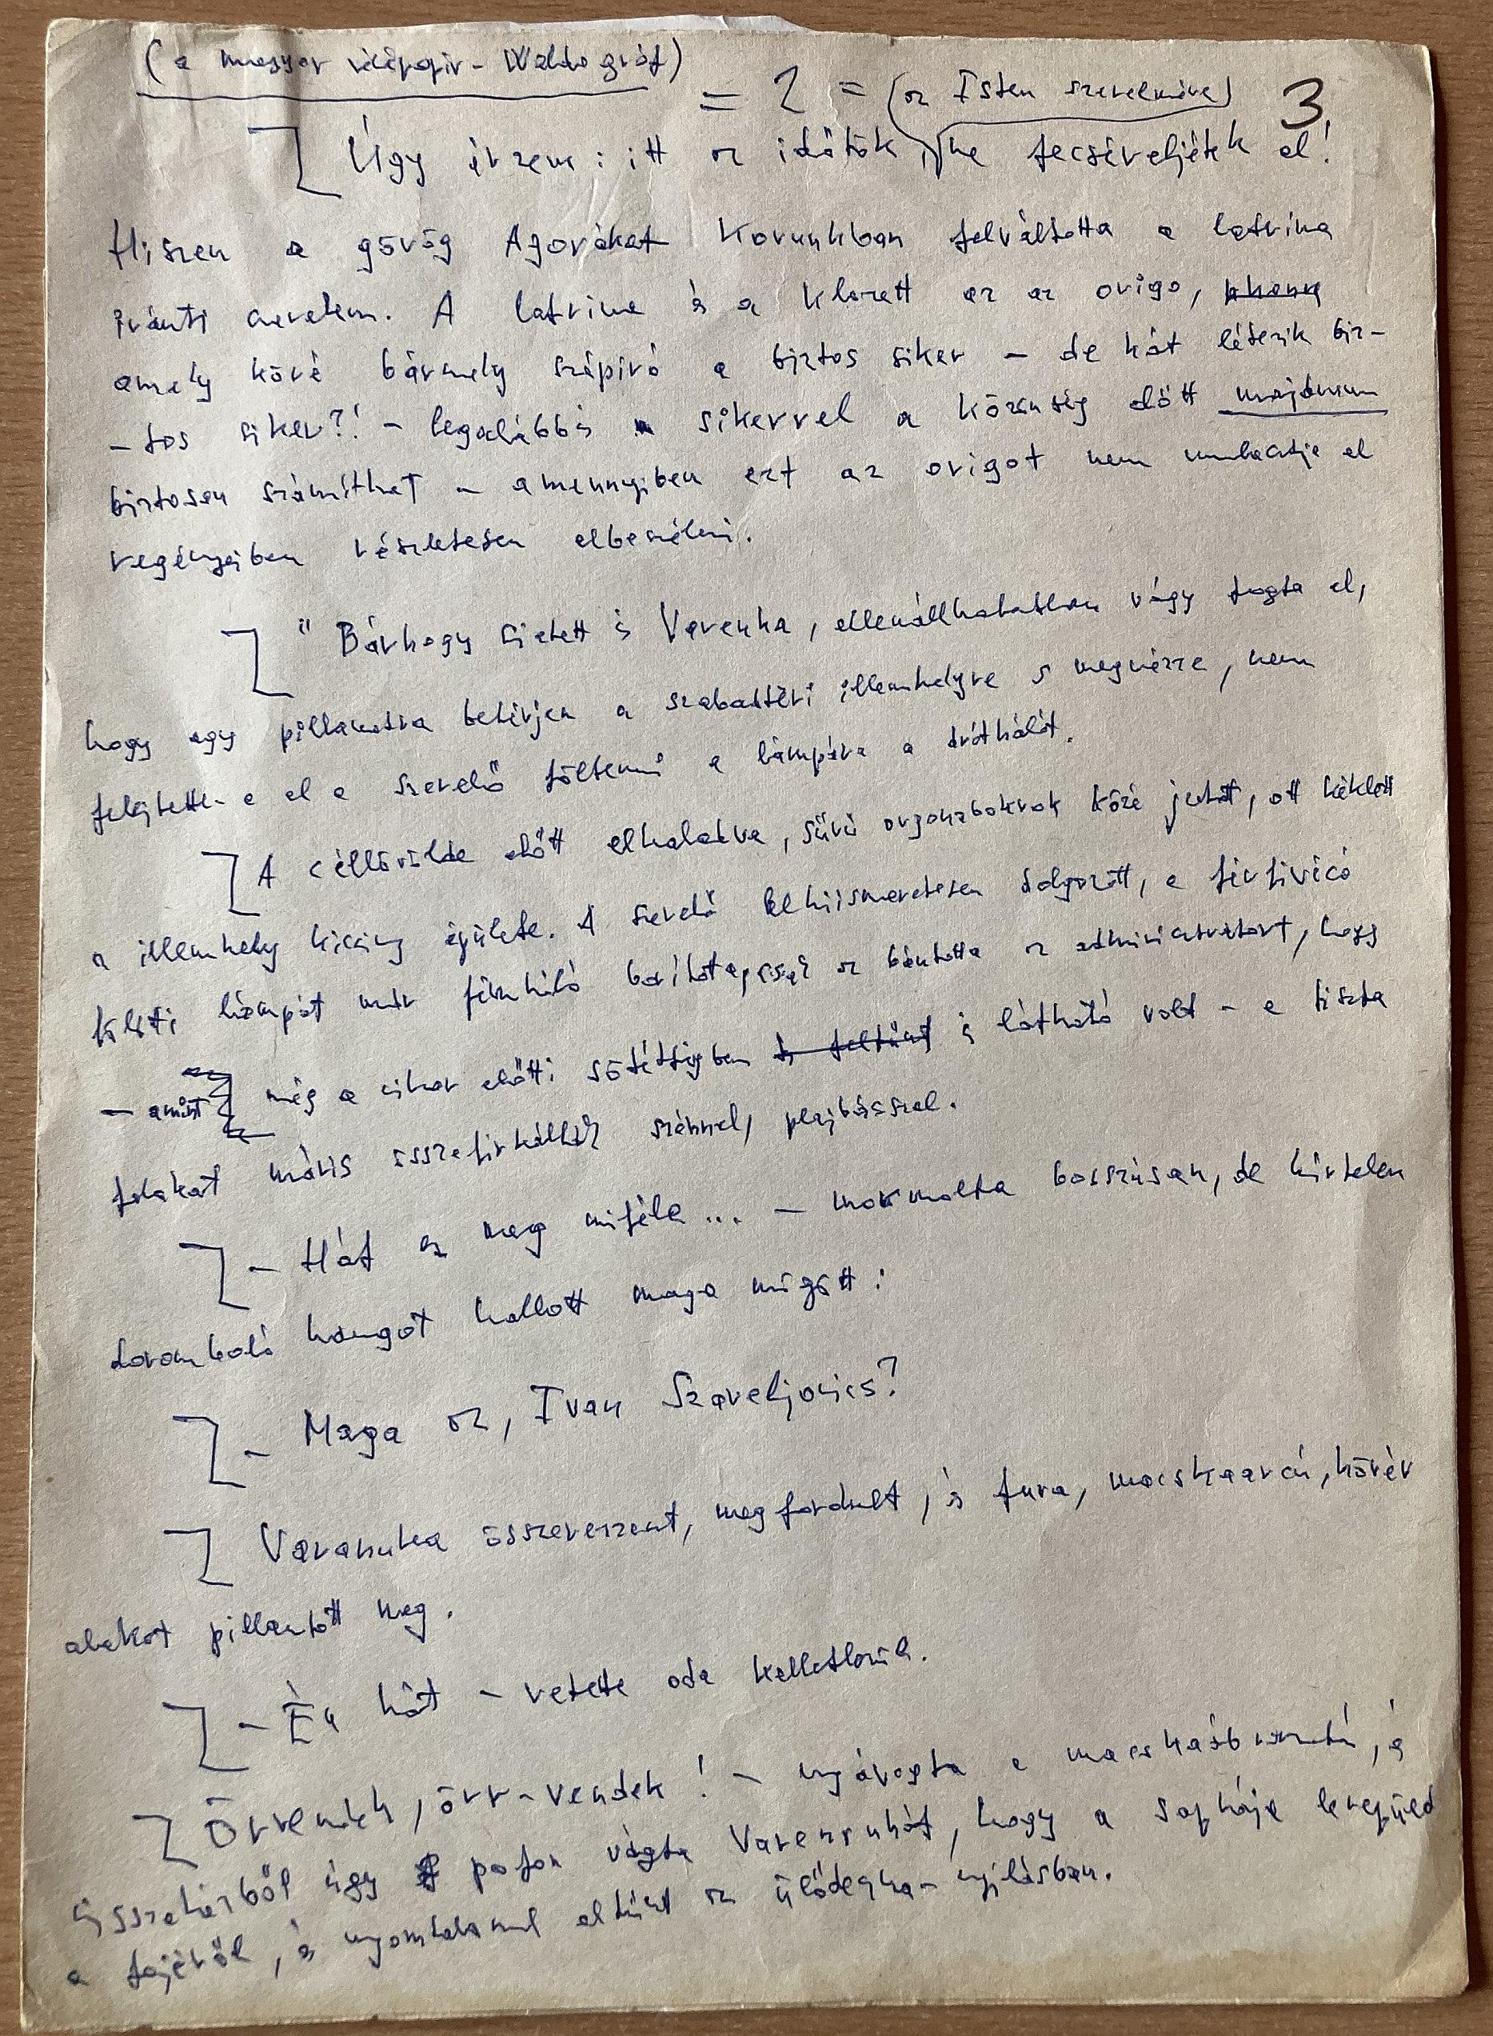 (a magyar vécépapír - Waldo gróf)
= 2 = (az Isten szerelmére) 3
Úgy érzem: itt az időtök, ne fecséreljétek el!
Hiszen a görög Agorákat korunkban felváltotta a latrina
iránti szerelem. A latrina és a klozett az az origo,
amely köré bármely szépíró a biztos siker - de hát létezik biz-
-tos siker?! - legalábbis sikerrel a közönség előtt majdnem
biztosan számíthat - amennyiben ezt az origot nem mulasztja el
regényeiben részletesen elbeszélni.
" Bárhogy sietett is Varenuha, ellenállhatatlan vágy fogta el,
hogy egy pillanatra betérjen a szabadtéri illemhelyre s megnézze, nem
felejtette-e el a szerelő föltenni a lámpára a dróthálót.
A céllövölde előtt elhaladva, sűrű orgonabokrok közé jutott, ott kéklett
az illemhely kicsiny épülete. A szerelő lelkiismeretesen dolgozott, a férfivécé
fölötti lámpát már fémháló borította, csak az bántotta az adminisztrátort, hogy
- amint még a vihar előtti sötétségben is látható volt - a tiszta
falakat máris összefirkálták szénnel, plajbásszal.
- Hát ez meg miféle... - mormolta bosszúsan, de hirtelen
doromboló hangot hallott maga mögött:
- Maga az, Ivan Szaveljovics?
Varenuha összerezzent, megfordult, és fura, macskaarcú, kövér
alakot pillantott meg.
- Én hát - vetette oda kelletlenül.
Örvendek, örr-vendek! - nyávogta a macskaábrázatú, és
úgy pofon vágta Varenuhát, hogy a sapkája lerepült
a fejéről, és nyomtalanul eltűnt az ülődeszka-nyílásban.